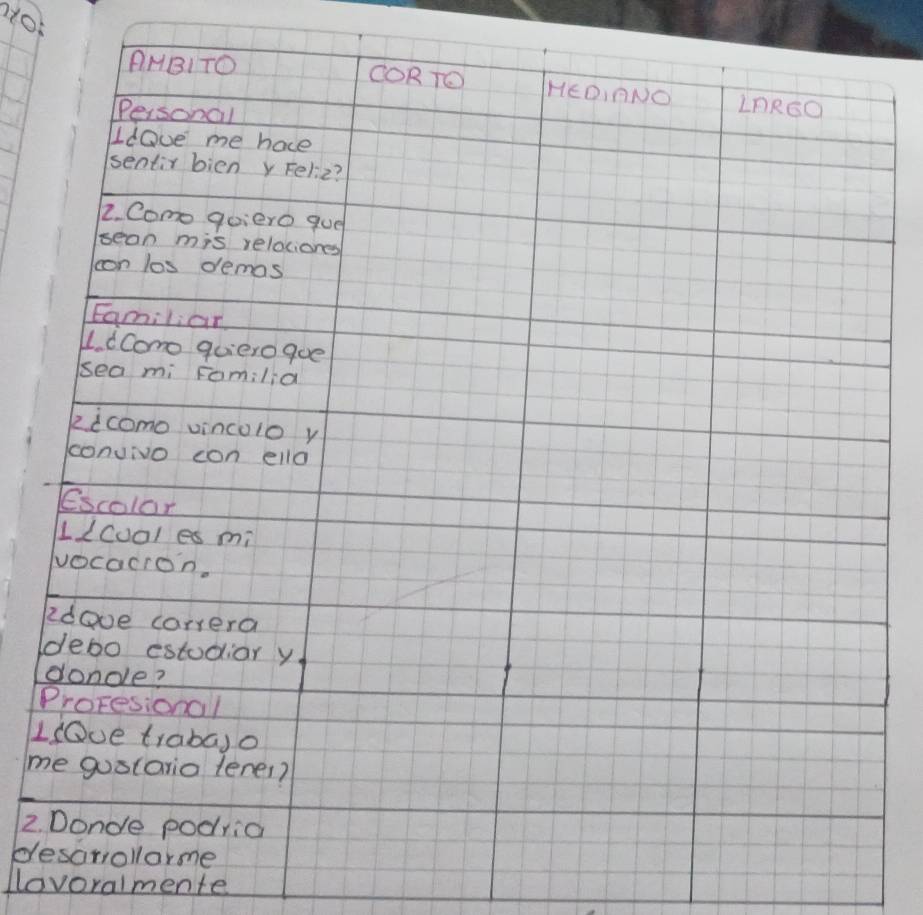 AMBITO CORTO MEDIANO LARGO
Personal
1¿Que me hace
sentir bien y Feliz?
2. Como quiero que
sean mis relaciones
con los demas
Familiar
1.¿Como quiero que
sea mi Familia
2¿como vinculo y
convivo con ella
Escolar
1¿cual es mi
vocación.
2¿Que carrera
debo estudiar y
donde?
Profesional
1¿Que trabajo
me gustaria tener?
2. Donde podria
desarrollarme
lavoralmente